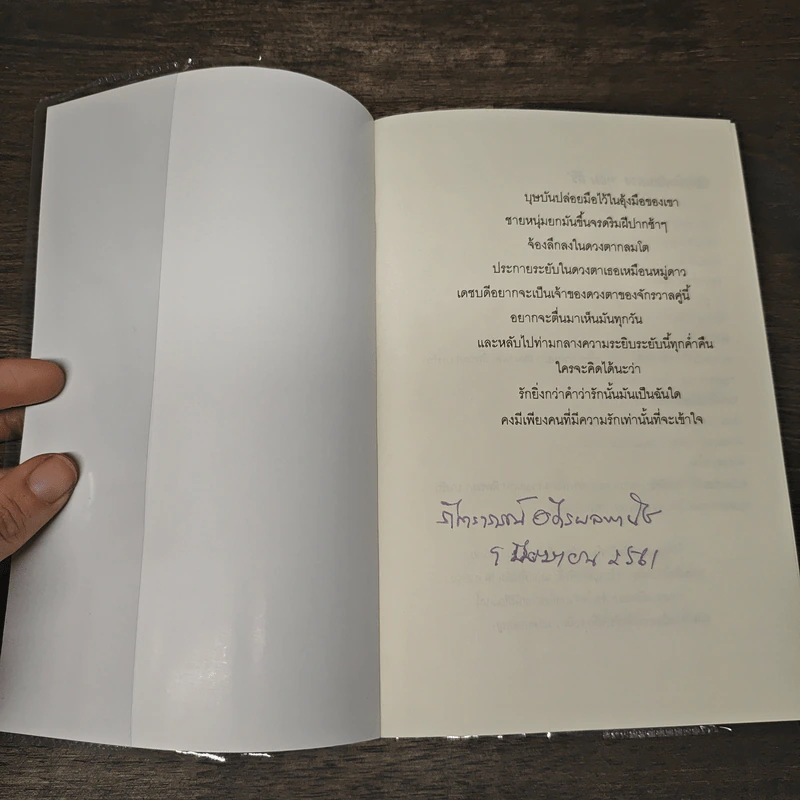 บุษบันปล่อยมือไว้ในอุ้งมือของเขา
ชายหนุ่มยกมันขึ้นจรดริมฝีปากช้าๆ
จ้องลึกลงในดวงตากลมโต
ประกายระยับในดวงตาเธอเหมือนหมู่ดาว
เดชบดีอยากจะเป็นเจ้าของดวงตาของจักรวาลคู่นี้
อยากจะตื่นมาเห็นมันทุกวัน
และหลับไปท่ามกลางความระยิบระยับนี้ทุกค่ำคืน
ใครจะคิดได้นะว่า
รักยิ่งกว่าคำว่ารักนั้นมันเป็นฉันใด
คงมีเพียงคนที่มีความรักเท่านั้นที่จะเข้าใจ
2561